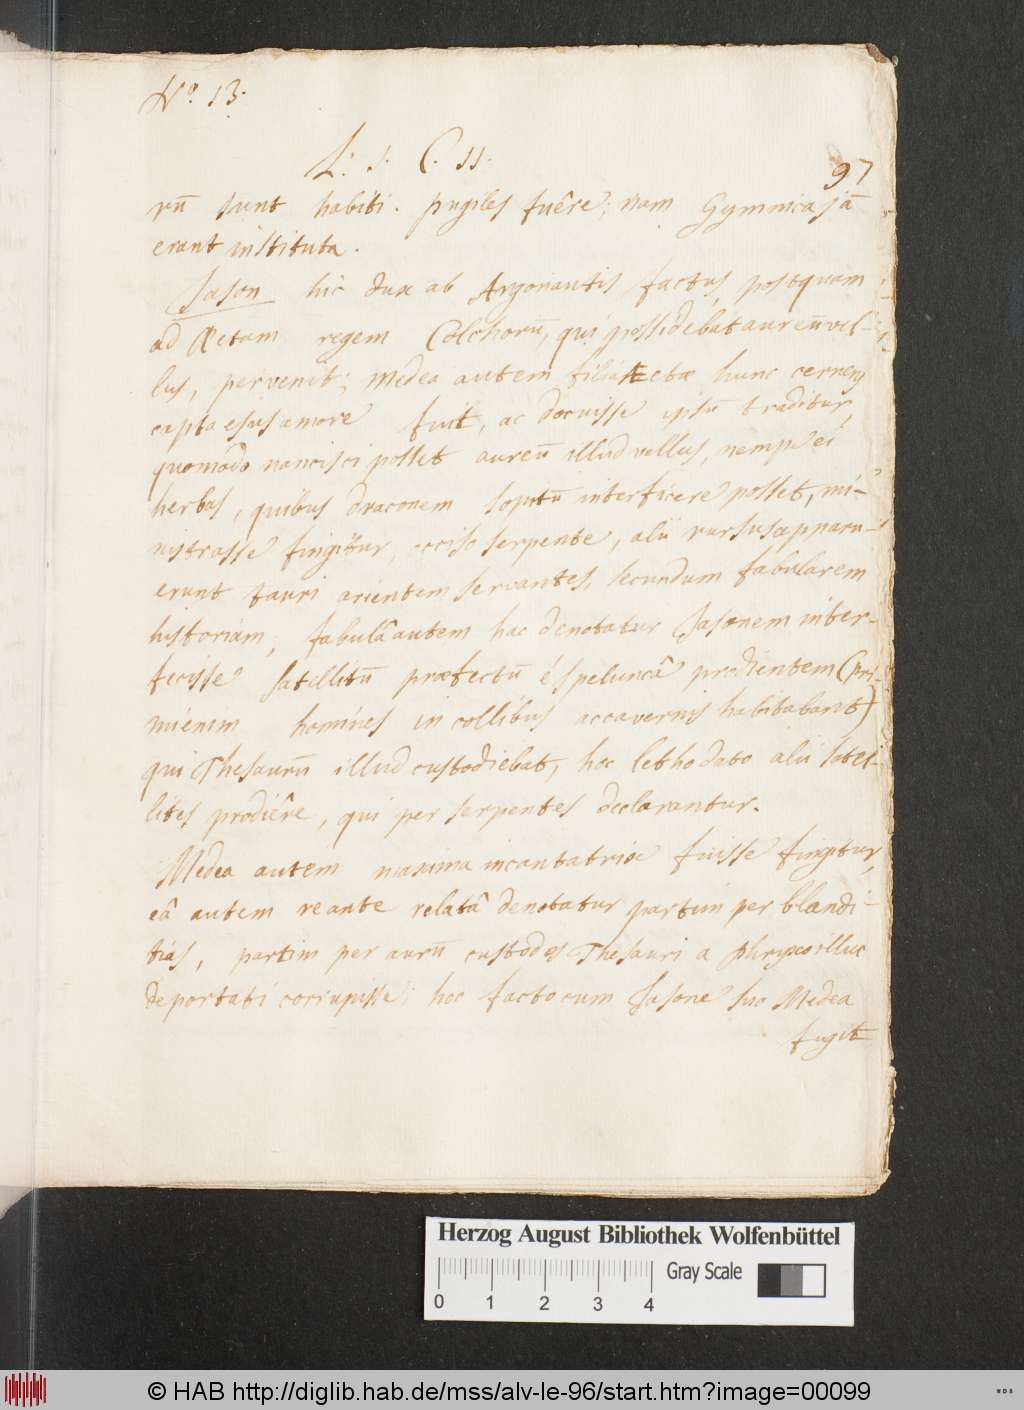 No. 13.
L: 1. C. 11.
97
rū sunt habiti. pugiles fuêre; nam Gymnica jā
erant instituta.
Jason hic dux ab Argonautis factus postquam
ad Æetam regem Colchorū, qui possidebat aureū vel-
lus, pervenit; Medea autem filia Æetæ hunc cernens
capta ejus amore fuit, ac docuisse ipsū traditur,
quomodo nancisci posset aureū illud vellus, nempe ei
herbas, quibus draconem sopitū interficere posset, mi-
nistrasse fingitur, occiso serpente, alii rursus apparu-
erunt tauri arietem servantes, secundum fabularem
historiam; fabulâ autem hac denotatur Jasonem inter-
fecisse satellitū præfectū é speluncâ prodientem (pri-
mi enim homines in collibus ac cavernis habitabant)
qui Thesaurū illud custodiebat, hoc letho dato alii satel-
lites prodiêre, qui per serpentes declarantur.
Medea autem maxima incantatrix fuisse fingitur,
eâ autem re ante relatâ denotatur partim per blandi-
tias, partim per aurū custodes Thesauri a Phryxo illuc
deportati corrupisse; hoc facto cum Jasone suo Medea
fugit
Herzog August Bibliothek Wolfenbüttel
Gray Scale
0 1 2 3 4
© HAB http://diglib.hab.de/mss/alv-le-96/start.htm?image=00099